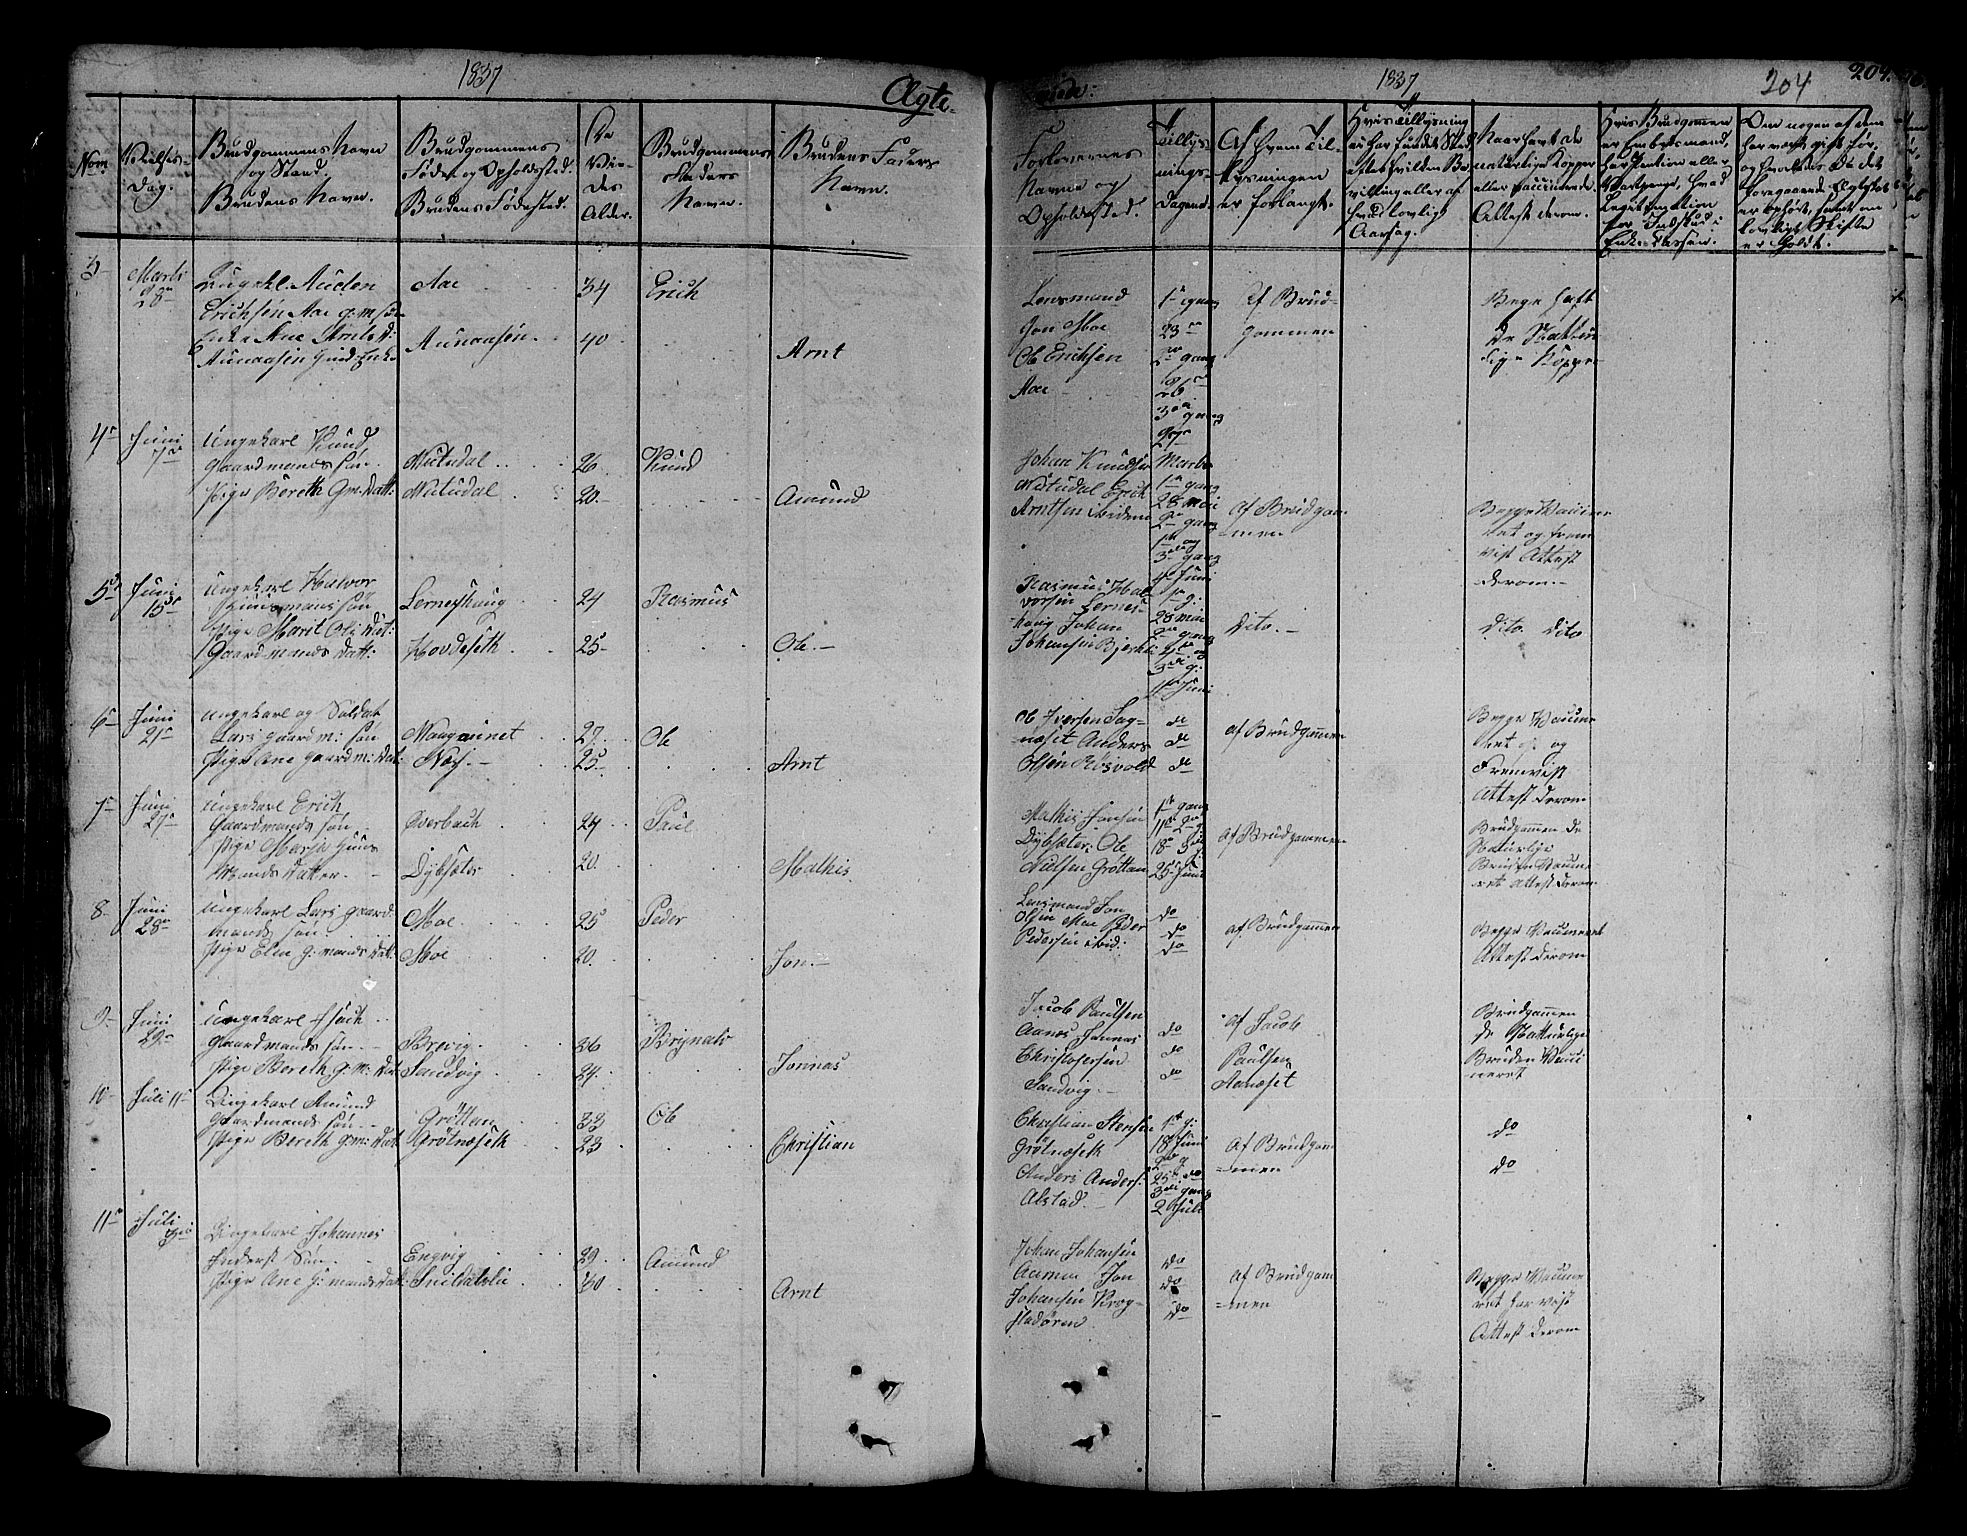 1837
Ægte-
Nom:
Vielses-
Dag.
Brudgommens Navn
og Stand.
Brudens Navn.
Brudgommens
Føde- og Opholdsted.
Brudens Fødested.
De
Vie-
des
Alder.
Brudgommens
Faders
Navn.
Brudens Faders
Navn.
3
Marts
28
Ungekl. Auden
Erichsen Aae g:m søn
Enke Ane Arntsd:
Aunaasen
Aae
Aunaasen
34
40
Erich
Arnt
4
Juni
7de
Ungekarl Knud
Gaardmands søn
Pige Bereth Gm: Datt:
Nutudal
Nutudal
26
20
Knud
Amund
5
Juni
15de
Ungekarl Halvor
søn
Pige Marit Ols Dat:
Gaardmands Datt:
Lerneshaug
Hovdeseth
24
25
Rasmus
Ole
6
Juni
21
Ungekarl og Soldat
Lars gaardm: søn
Pige Ane gaardm: Dat:
Naugaunet
Næs
27
25
Ole
Arnt
7
Juni
27
Ungekarl Erich
Gaardmands søn
Pige Marit Huus
Mands Datter
Overbach
Dybsæter
24
20
Paul
Mathis
8
Juni
28
Ungekarl Lars gaard-
mands søn
Pige Elen g:mands Dat:
Moe
Moe
25
20
Peder
Jon
9
Juni
29
Ungekarl Isach
Gaardmands søn
Pige Bereth g:m: Dat
Brevig
Sandvig
36
24
Brynals
Jonnas
10
Juli 11
Ungekarl Amund
Gaardmands søn
Pige Bereth g:m: Dat
Grøttan
Grøtnæseth
33
23
Ole
Christian
11
Juli
Ungekarl Johannes
Inderst Søn
Pige Ane g:mands Dat:
Engvig
Snildalslie
29
30
Amund
Arnt
1837
204
204.
Forlovernes
Navne og
Opholdsted.
Tillys-
nings-
Dagene.
Af Hvem Til-
lysningen
er forlangt.
Hvis Tillysning
ei har fundet Sted
efter hvilken Be-
villing eller af
hvad lovlig
Aarsag.
Naar havt de
naturlige Kopper
eller vaccinerede.
Attest derom.
Hvis Brudgommen
er Embedsmand,
har Pention eller
Vartpenge, hvad
Legitimation
for Indskud i
Enke-Kassen.
Om nogen af dem
har været gift før,
og hvorledes da det
foregaaende Ægteskab
er ophørt, samt om
lovligt Skifte
er holdt.
Lensmand
Jon Moe
Ole Erichsen
Aae
1ste gang
23
2den gang
26
3die gang
27
Marts
Af Brud-
gommen
Bege haft
de Nattur
lige Kopper
Johan Knudsen
Nutudal Erich
Arntsen ibidem
1ste gang
28 Mai
2den gang
1ste og
3die gang
4de Juni
Af Brudgom-
=men
Begge Vaccine-
ret og frem
vist Attest
derom
Rasmus Hal-
vorsen Lernes-
haug Johan
Johansen Bjerkli
1ste g:
28 Mai
2den gang
4de og
3die g:
11te Juni
Dito.
Dito Dito
Ole Iversen Sag-
næset Anders
Olsen Rosvold
do
do
do
af Brudgommen
Begge Vaccine-
ret og
Fremvist
Attest derom
Mathis Jonsen
Dybsæter: Ole
Nielsen Grøttan
1ste gang
11te 2den g
18 3die g
25 Juni
af Brudgommen
Brudgommen de
Naturlige
Bruden Vaccine-
ret Attest derom
Lensmand Jon
Olsen Moe Peder
Pedersen ibid:
do
do
do
af Brudgommen
Begge Vaccineret
Attest derom
Jacob Paulsen
Aanes Jonnas
Christofersen
Sandvig
do
do
do
af Jacob
Paulsen
Aanæset
Brudgommen
de Natturlige
Bruden Vacci
neret
Christian Stensen
Grøtnæseth
Anders Anders:
Alstad
1ste g:
18 Juni
2den g
25 do
3die gang
2 Juli
af Brudgom-
=men
do
do
Johan Johansen
Aunan Jon
Johansen Krog-
stadøren
do
do
do
af Brudgom
=men
Begge Vaccine
ret har vist
Attest derom